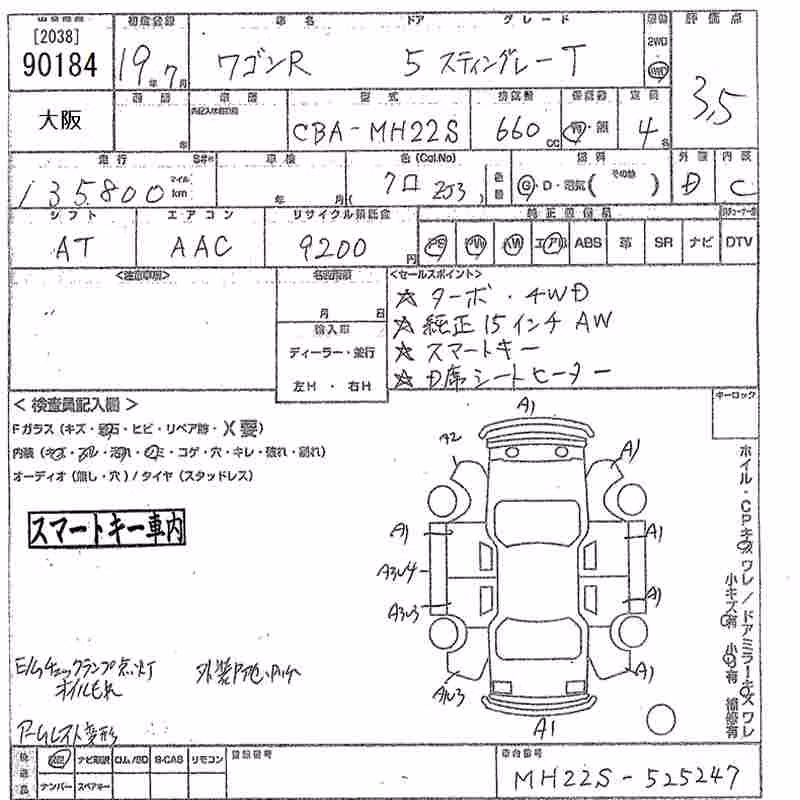 [2038]
90184
初度登録
19年7月
車名
ワゴンR
ドア
5
グレード
スティングレーT
駆動
2WD
4WD
評価点
3.5
大阪
型式
CBA-MH22S
排気量
660cc
冷房器
定員
4名
走行
135,800
マイル
km
車検
年 月
色(Col.No)
クロ 2J3
燃料
G・D・電気( その他 )
外装
D
内装
C
シフト
AT
エアコン
AAC
リサイクル預託金
9200円
純正装備品
PS PW AW エアB ABS 革 SR ナビ DTV
<注意事項>
名変期限
月 日
輸入車
ディーラー・並行
左H・右H
<セールスポイント>
☆ ターボ・4WD
☆ 純正15インチAW
☆ スマートキー
☆ D席シートヒーター
キーロック
<検査員記入欄>
Fガラス(キズ・飛石・ヒビ・リペア跡・X要)
内装(キズ・スレ・汚れ・シミ・コゲ・穴・キレ・破れ・割れ)
オーディオ(無し・穴)/タイヤ(スタッドレス)
スマートキー車内
A1
A2
A1
A1
A1
A3
A3
A1
A1
A1
ホイル・CPキズ ワレ/ドアミラーキズ ワレ
小キズ有 小凹有 補修有
E/Gチェックランプ点灯
オイルもれ
アームレスト変形
ナビ取説 ロム/SD B-CAS リモコン
ナンバー スペアキー
登録番号
車台番号
MH22S-525247